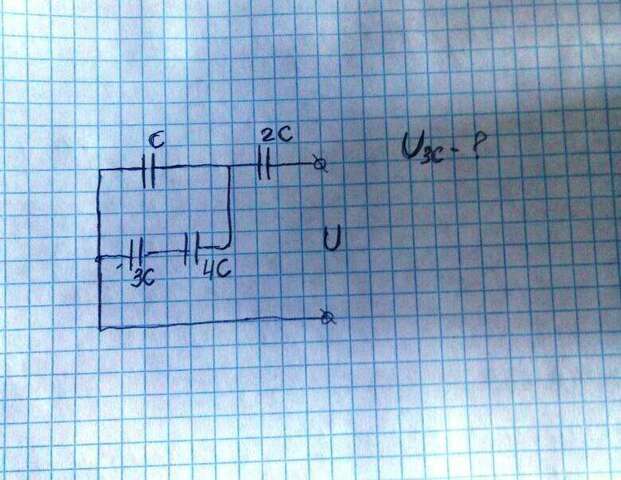 C
2C
U₃C - ?
U
3C
4C